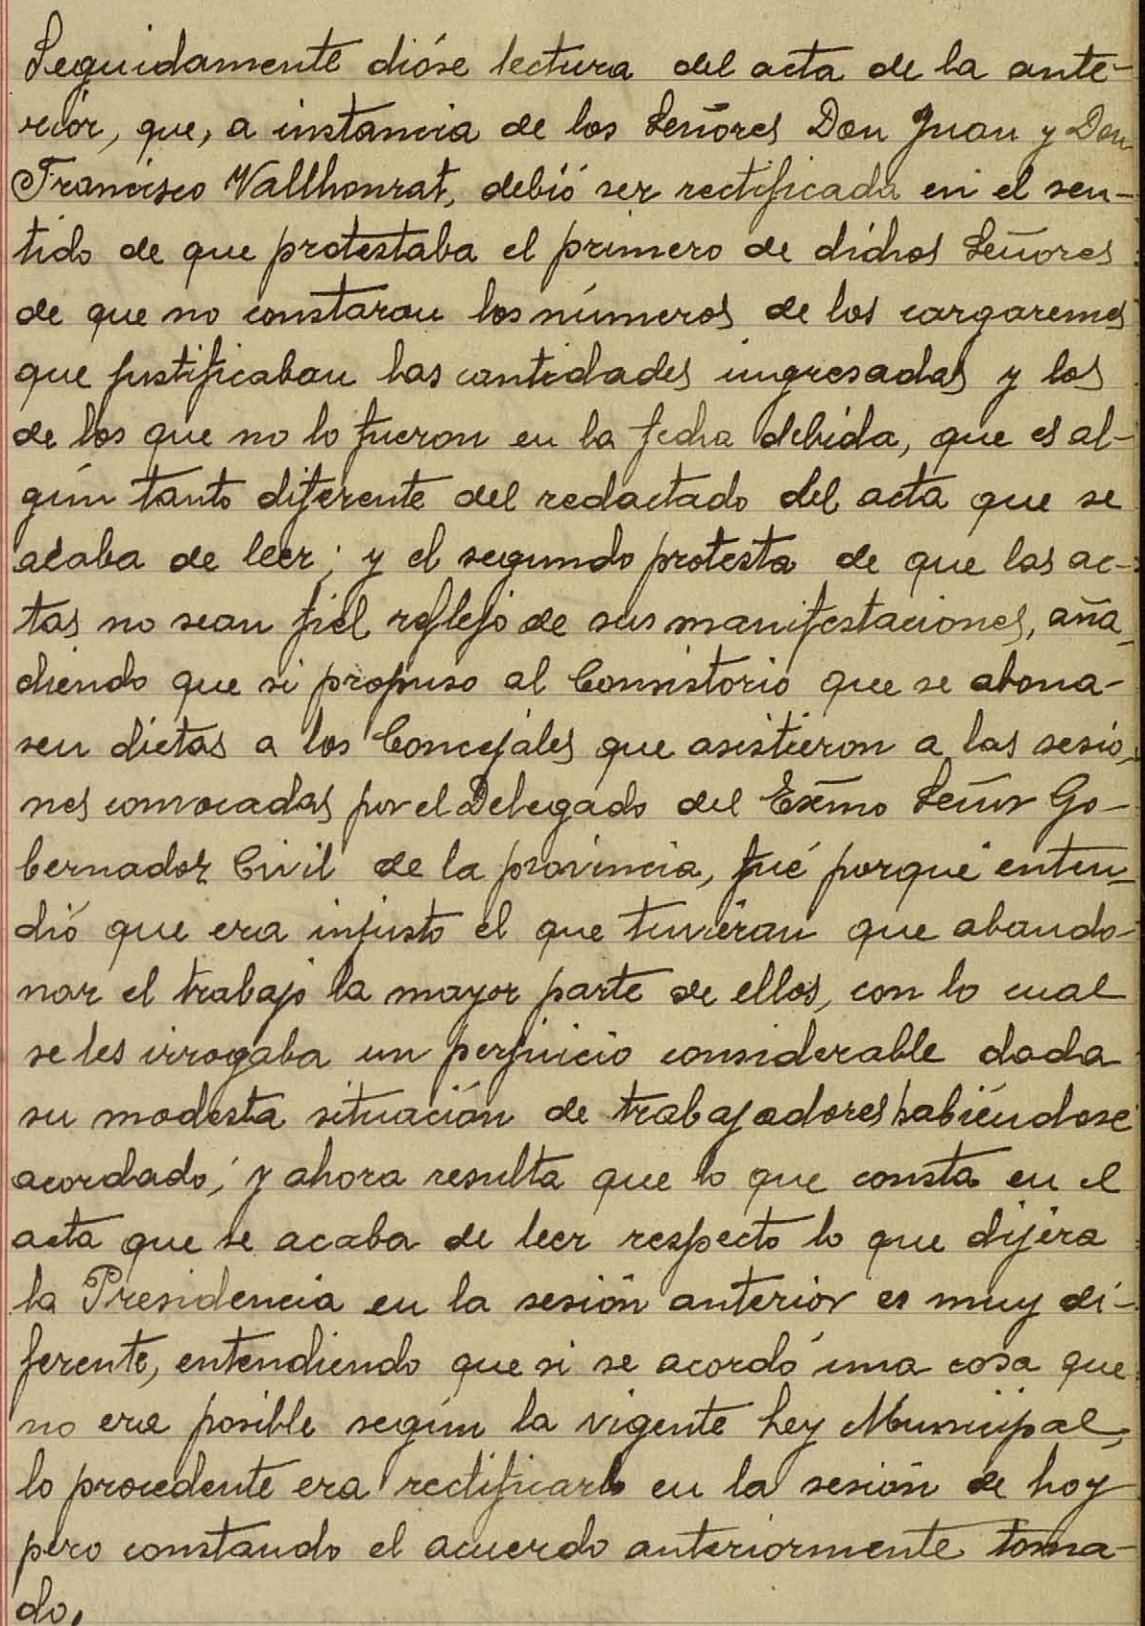 Seguidamente dióse lectura del acta de la ante-
rior, que, a instancia de los Señores Don Juan y Don
Francisco Vallhonrat, debió ser rectificada en el sen-
tido de que protestaba el primero de dichos Señores
de que no constaran los números de los cargaremes
que justificaban las cantidades ingresadas y los
de los que no lo fueron en la fecha debida, que es al-
gún tanto diferente del redactado del acta que se
acaba de leer; y el segundo protesta de que las ac-
tas no sean fiel reflejo de sus manifestaciones, aña-
diendo que si propuso al Consistorio que se abona-
sen dietas a los Concejales que asistieron a las sesio-
nes convocadas por el Delegado del Exmo Señor Go-
bernador Civil de la provincia, fué porque enten-
dió que era injusto el que tuvieran que abando-
nar el trabajo la mayor parte de ellos, con lo cual
se les irrogaba un perjuicio considerable dada
su modesta situación de trabajadores habiéndose
acordado; y ahora resulta que lo que consta en el
acta que se acaba de leer respecto lo que dijera
la Presidencia en la sesión anterior es muy di-
ferente, entendiendo que si se acordó una cosa que
no era posible según la vigente Ley Municipal,
lo procedente era rectificarlo en la sesión de hoy
pero constando el acuerdo anteriormente toma-
do.